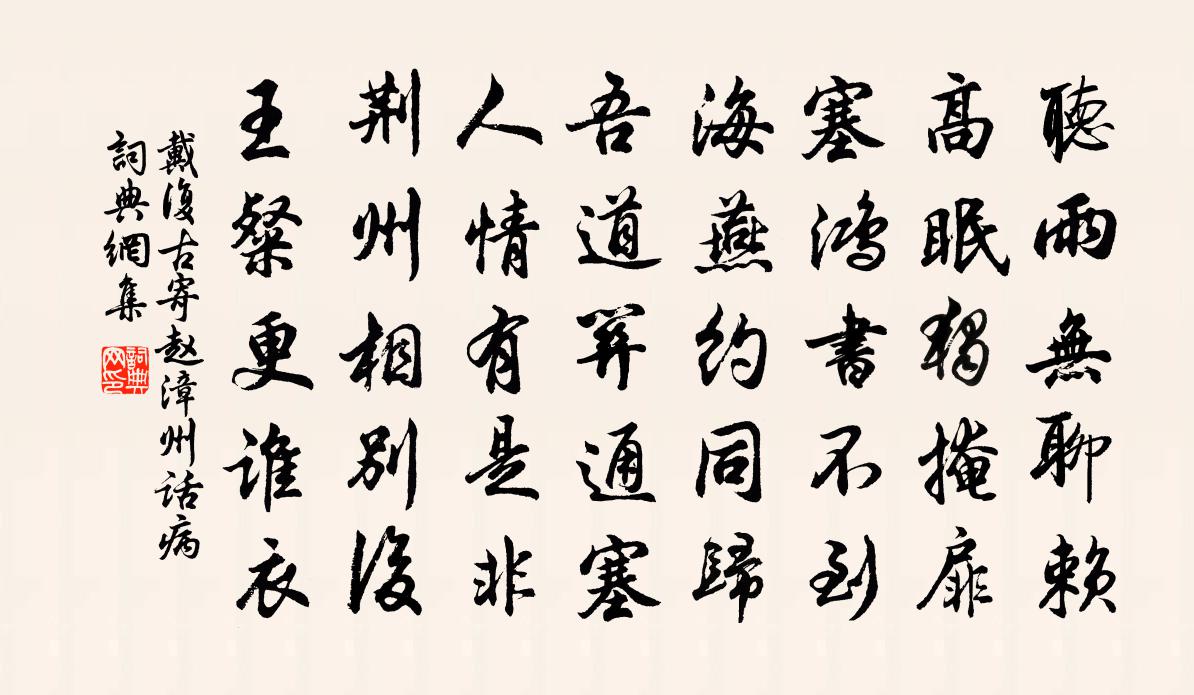 聽雨無聊賴
高眠獨掩扉
塞鴻書不到
海燕約同歸
吾道關通塞
人情有是非
荆州相別後
王粲更誰衣
戴復古寄赵漳州話病
詞典網集
詞典网印